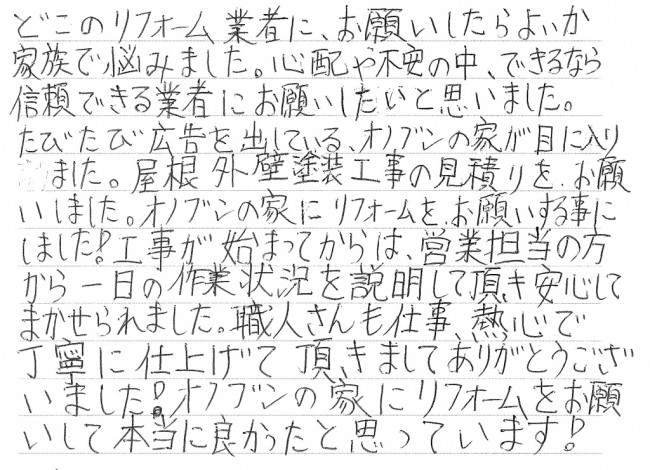 どこのリフォーム業者に、お願いしたらよいか
家族で悩みました。心配や不安の中、できるなら
信頼できる業者にお願いしたいと思いました。
たびたび広告を出している、オノブンの家が目に入り
ました。屋根外壁塗装工事の見積りを、お願
いしました。オノブンの家にリフォームを、お願いする事に
しました!工事が始まってからは、営業担当の方
から一日の作業状況を説明して頂き安心して
まかせられました。職人さんも仕事、熱心で
丁寧に仕上げて頂きましてありがとうござ
いました!オノブンの家にリフォームをお願
いして本当に良かったと思っています!